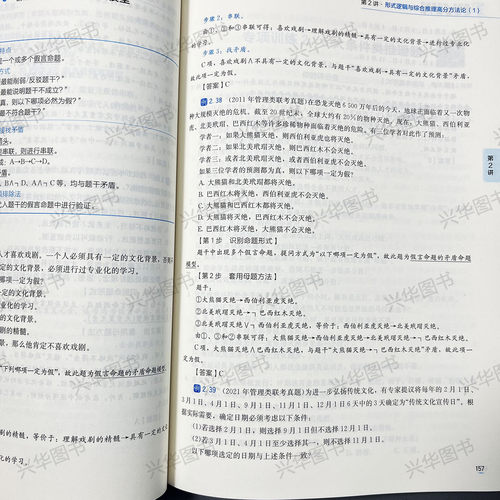 第2讲·形式逻辑与综合推理高分方法论(1)
步骤2:串联。
由①、②和③串联可得:喜欢戏剧→理解戏剧的精髓→具有一定的文化背景→进行过专业化的学习。
步骤3:找矛盾。
C项,喜欢戏剧∧不具有一定的文化背景,与题干"喜欢戏剧→具有一定的文化背景"矛盾,
故此项一定为假。
【答案】C
例2.38 (2011年管理类联考真题)在恐龙灭绝6 500万年后的今天,地球正面临着又一次物
种大规模灭绝的危机。截至20世纪末,全球大约有20%的物种灭绝。现在,大熊猫、西伯利亚
虎、北美玳瑁、巴西红木等许多珍稀物种面临着灭绝的危险。有三位学者对此作了预测:
学者一:如果大熊猫灭绝,则西伯利亚虎也将灭绝。
学者二:如果北美玳瑁灭绝,则巴西红木不会灭绝。
学者三:或者北美玳瑁灭绝,或者西伯利亚虎不会灭绝。
如果三位学者的预测都为真,则以下哪项一定为假?
A. 大熊猫和北美玳瑁都将灭绝。
B. 巴西红木将灭绝,西伯利亚虎不会灭绝。
C. 大熊猫和巴西红木都将灭绝。
D. 大熊猫将灭绝,巴西红木不会灭绝。
E. 巴西红木将灭绝,大熊猫不会灭绝。
【第1步 识别命题形式】
题干中出现多个假言命题,提问方式为"以下哪项一定为假",故此题为假言命题的矛盾命题
模型。
【第2步 套用母题方法】
题干:
①大熊猫灭绝→西伯利亚虎灭绝。
②北美玳瑁灭绝→¬巴西红木灭绝。
③北美玳瑁灭绝∨¬西伯利亚虎灭绝,等价于:西伯利亚虎灭绝→北美玳瑁灭绝。
由①、③和②串联可得:大熊猫灭绝→西伯利亚虎灭绝→北美玳瑁灭绝→¬巴西红木灭绝。
C项,大熊猫灭绝∧巴西红木灭绝,与题干"大熊猫灭绝→¬巴西红木灭绝"矛盾,故此项一
定为假。
【答案】C
例2.39 (2021年管理类联考真题)为进一步弘扬传统文化,有专家提议将每年的2月1日、
3月1日、4月1日、9月1日、11月1日、12月1日6天中的3天确定为"传统文化宣传日"。根
据实际需要,确定日期必须考虑以下条件:
(1)若选择2月1日,则选择9月1日但不选12月1日。
(2)若3月1日、4月1日至少选择其一,则不选11月1日。
以下哪项选定的日期与上述条件一致?
157
第2讲
一个或多个假言命题。
最能削弱/反驳题干?"
最能说明题干不成立?"
真,则以下哪项必然为假?"
不符合题干?"
串联,则进行串联。
A→B→C→D。
、B∧¬D、A∧¬C等,均与题干矛盾。
题干的假言命题中进行验证。
人才喜欢戏剧。一个人必须具有一定的文化背景,否则
定的文化背景,必须进行过专业化的学习。
定的文化背景。
化的学习。
的文化背景。
剧的精髓。
景,那么他肯定不喜欢戏剧。
"下列哪项一定为假",故此题为假言命题的矛盾命题模型。
剧的精髓,等价于:理解戏剧的精髓→具有一定的文
化的学习。
兴华图书